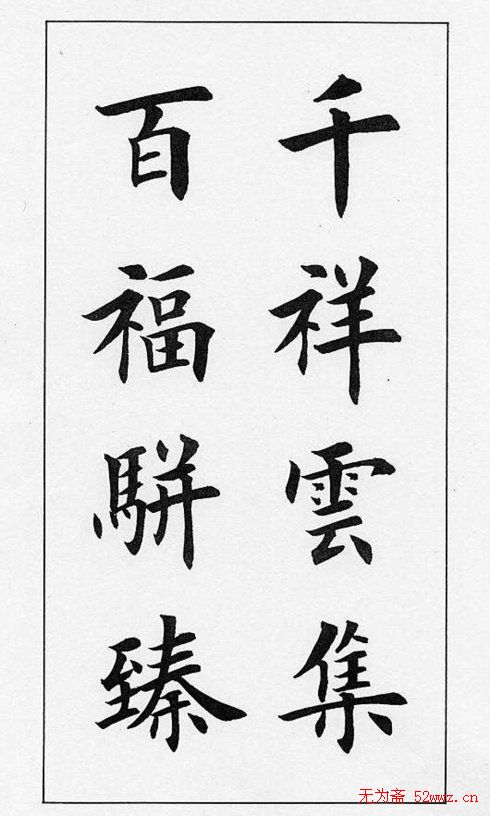 千祥雲集
百福駢臻
无为斋 52wwz.cn